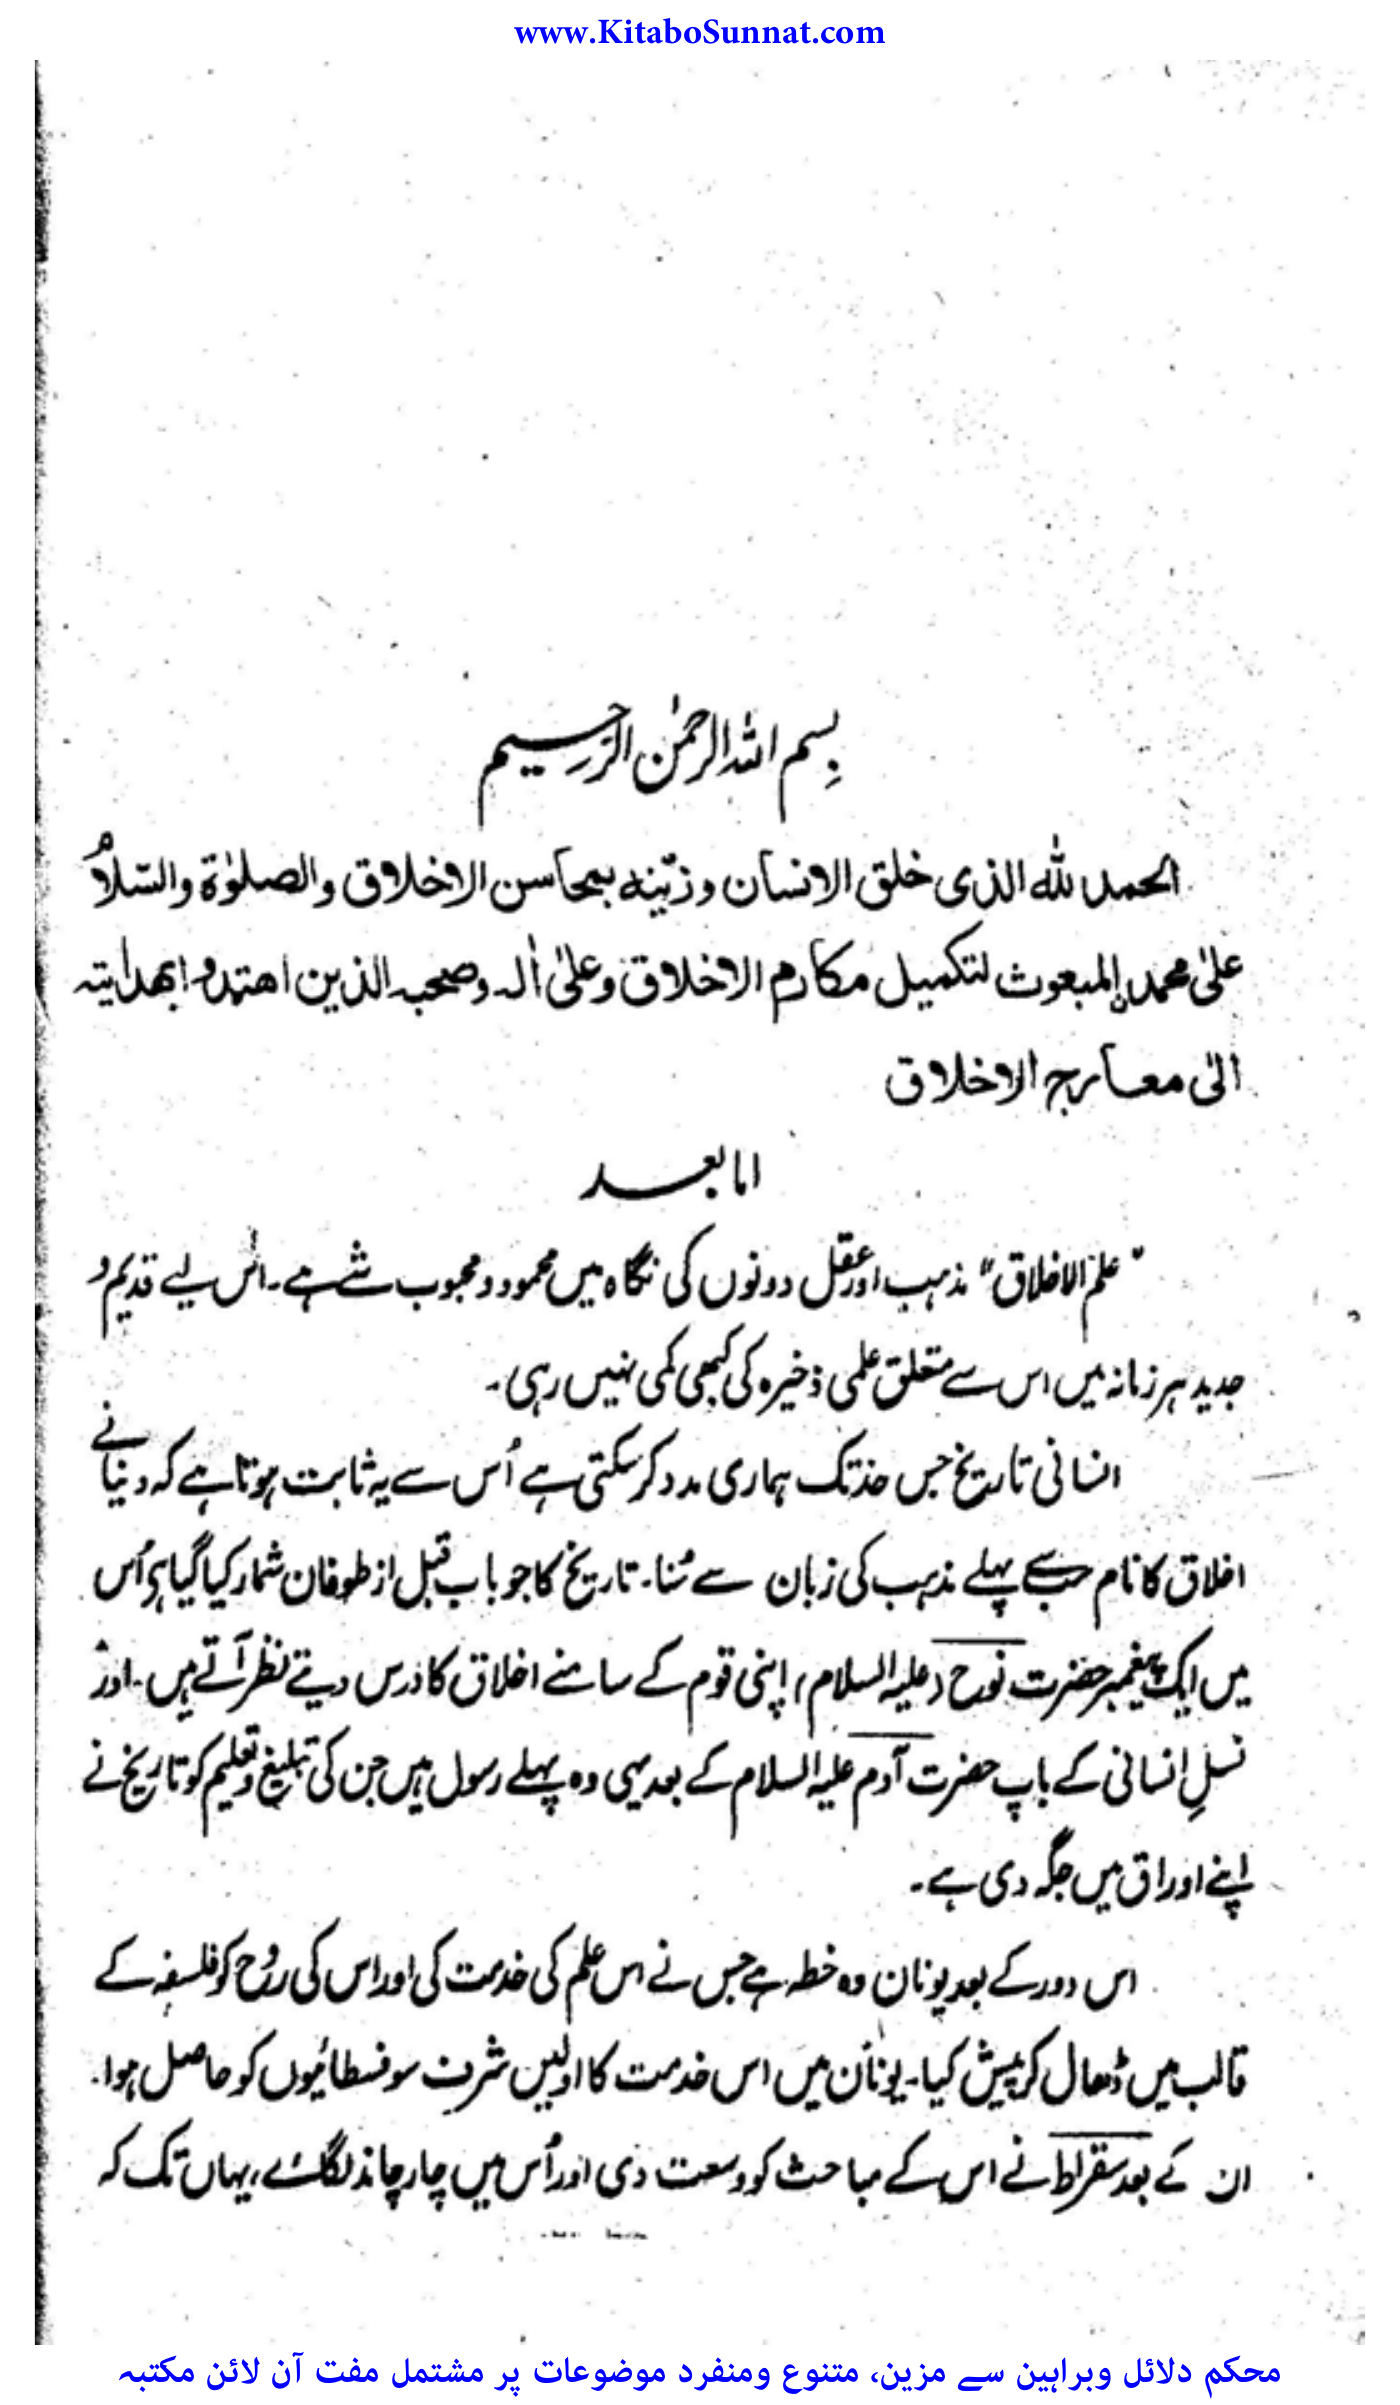 www.KitaboSunnat.com
بِسم اللہ الرحمٰن الرَّحِیم
الحمد للہ الذی خلق الانسان وزیّنہ بمحاسن الاخلاق والصلوٰۃ والسّلامُ
علیٰ محمدٍ المبعوث لتکمیل مکارم الاخلاق وعلیٰ اٰلہ وصحبہ الذین اھتدوا بھدایتہ
الیٰ معارج الاخلاق
اما بعد
"علم الاخلاق" مذہب اور عقل دونوں کی نگاہ میں محمود و محبوب شے ہے۔ اس لیے قدیم و
جدید ہر زمانہ میں اس سے متعلق علمی ذخیرہ کی کبھی کمی نہیں رہی۔
انسانی تاریخ جس حد تک ہماری مدد کر سکتی ہے اُس سے یہ ثابت ہوتا ہے کہ دنیا نے
اخلاق کا نام سب سے پہلے مذہب کی زبان سے سُنا۔ تاریخ کا جو باب قبل از طوفان شمار کیا گیا ہے اُس
میں ایک پیغمبر حضرت نوح (علیہ السلام) اپنی قوم کے سامنے اخلاق کا درس دیتے نظر آتے ہیں۔ اور
نسلِ انسانی کے باپ حضرت آدم علیہ السلام کے بعد یہی وہ پہلے رسول ہیں جن کی تبلیغ و تعلیم کو تاریخ نے
اپنے اوراق میں جگہ دی ہے۔
اس دور کے بعد یونان وہ خطہ ہے جس نے اس علم کی خدمت کی اور اس کی رُوح کو فلسفہ کے
قالب میں ڈھال کر پیش کیا۔ یونان میں اس خدمت کا اولیں شرف سوفسطائیوں کو حاصل ہوا۔
ان کے بعد سقراط نے اس کے مباحث کو وسعت دی اور اُس میں چار چاند لگائے، یہاں تک کہ
محکم دلائل وبراہین سے مزین، متنوع ومنفرد موضوعات پر مشتمل مفت آن لائن مکتبہ